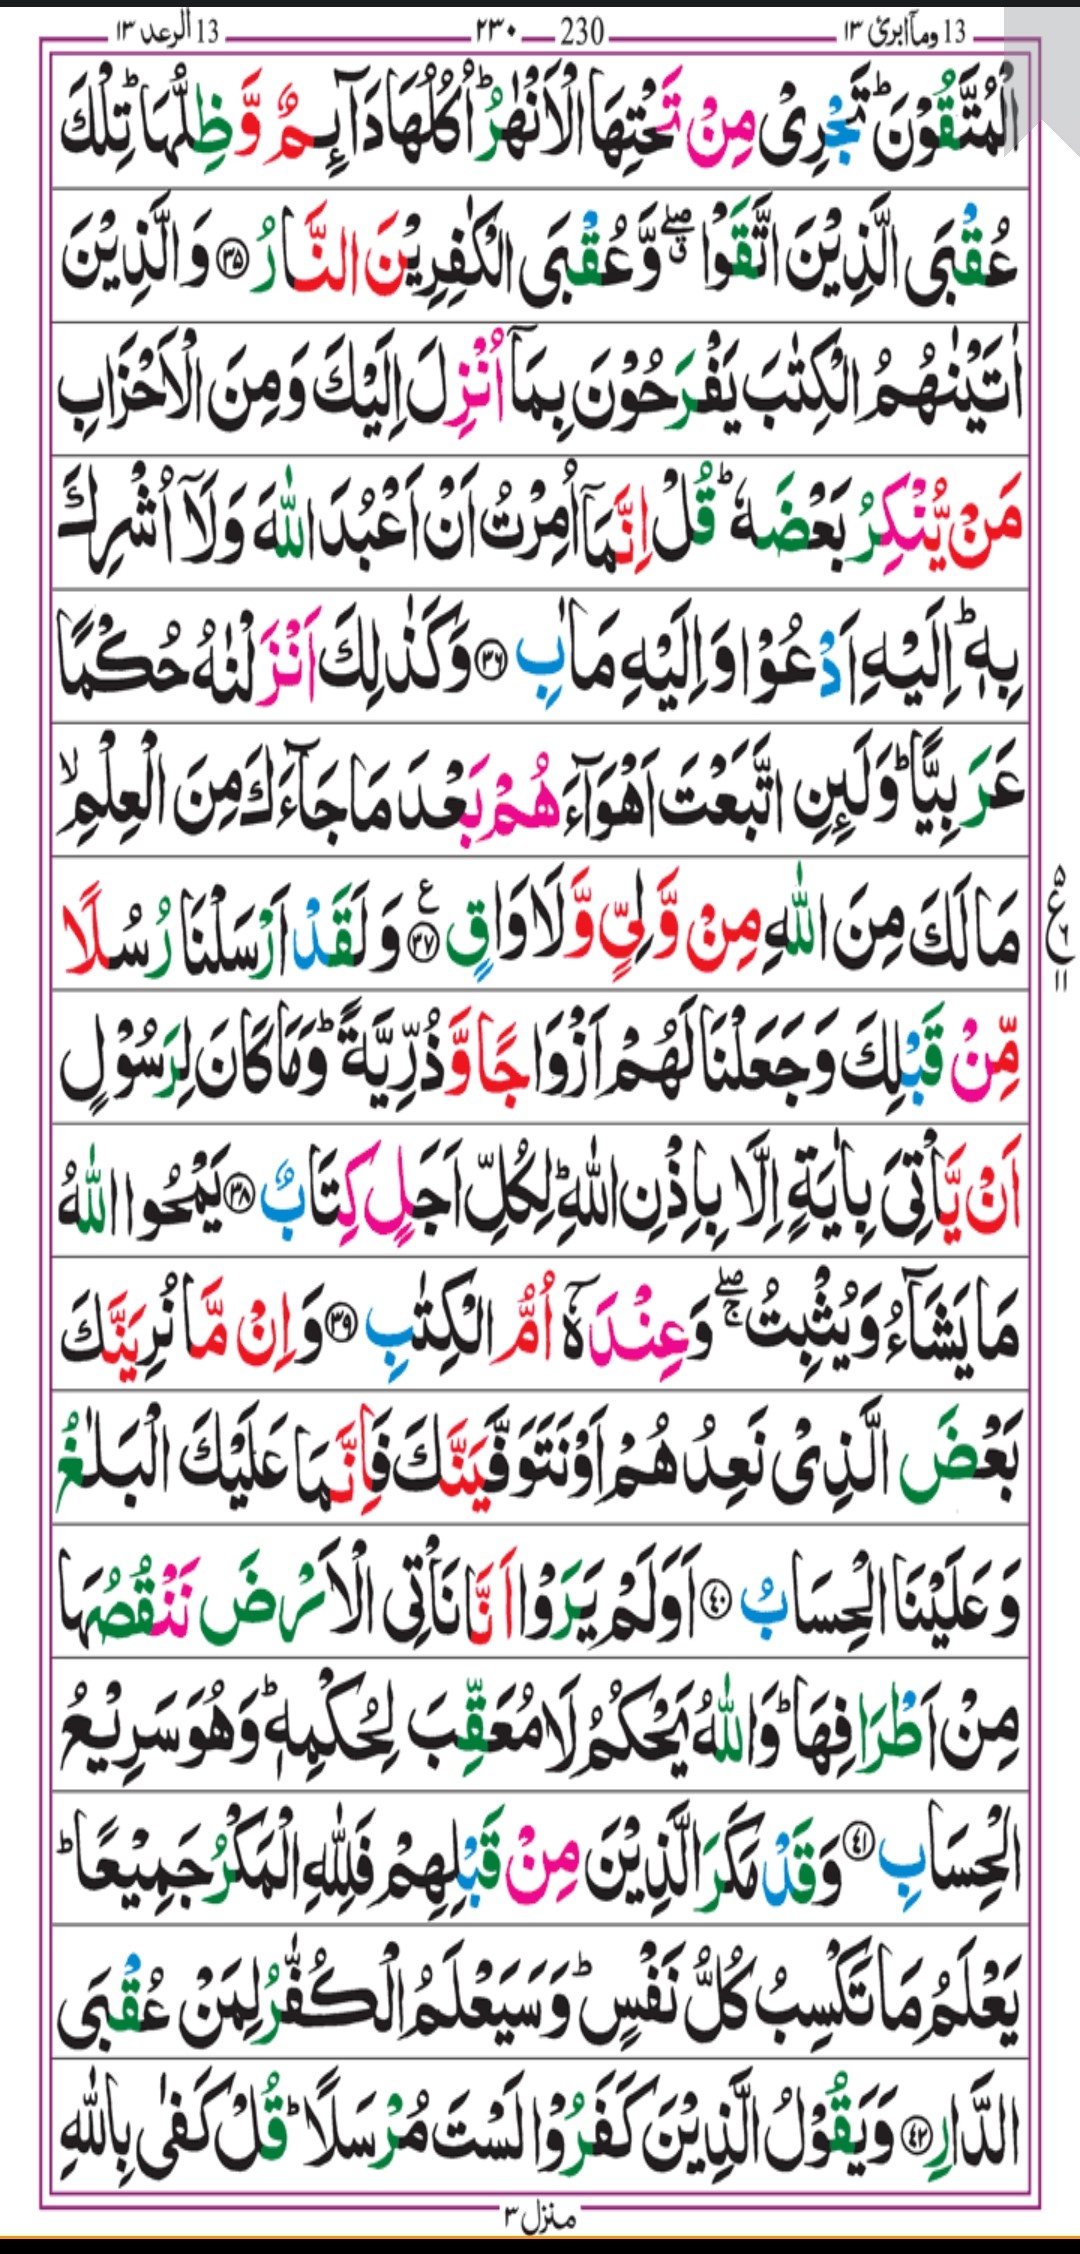 13 وماۤابرئ ١٣ ٢٣٠ 230 13 الرعد ١٣
الْمُتَّقُوْنَ ؕ تَجْرِیْ مِنْ تَحْتِهَا الْاَنْهٰرُ ؕ اُكُلُهَا دَآىِٕمٌ وَّ ظِلُّهَا ؕ تِلْكَ
عُقْبَی الَّذِیْنَ اتَّقَوْا ۖۗ وَّ عُقْبَی الْكٰفِرِیْنَ النَّارُ ﴿۳۵﴾ وَ الَّذِیْنَ
اٰتَیْنٰهُمُ الْكِتٰبَ یَفْرَحُوْنَ بِمَاۤ اُنْزِلَ اِلَیْكَ وَ مِنَ الْاَحْزَابِ
مَنْ یُّنْكِرُ بَعْضَهٗ ؕ قُلْ اِنَّمَاۤ اُمِرْتُ اَنْ اَعْبُدَ اللّٰهَ وَ لَاۤ اُشْرِكَ
بِهٖ ؕ اِلَیْهِ اَدْعُوْا وَ اِلَیْهِ مَاٰبِ ﴿۳۶﴾ وَ كَذٰلِكَ اَنْزَلْنٰهُ حُكْمًا
عَرَبِیًّا ؕ وَ لَىِٕنِ اتَّبَعْتَ اَهْوَآءَهُمْ بَعْدَ مَا جَآءَكَ مِنَ الْعِلْمِ ۙ
مَا لَكَ مِنَ اللّٰهِ مِنْ وَّلِیٍّ وَّ لَا وَاقٍ ﴿۳۷﴾ ع وَ لَقَدْ اَرْسَلْنَا رُسُلًا
ع ۵ ٦ ١١
مِّنْ قَبْلِكَ وَ جَعَلْنَا لَهُمْ اَزْوَاجًا وَّ ذُرِّیَّةً ؕ وَ مَا كَانَ لِرَسُوْلٍ
اَنْ یَّاْتِیَ بِاٰیَةٍ اِلَّا بِاِذْنِ اللّٰهِ ؕ لِكُلِّ اَجَلٍ كِتَابٌ ﴿۳۸﴾ یَمْحُوا اللّٰهُ
مَا یَشَآءُ وَ یُثْبِتُ ۖۚ وَ عِنْدَهٗۤ اُمُّ الْكِتٰبِ ﴿۳۹﴾ وَ اِنْ مَّا نُرِیَنَّكَ
بَعْضَ الَّذِیْ نَعِدُهُمْ اَوْ نَتَوَفَّیَنَّكَ فَاِنَّمَا عَلَیْكَ الْبَلٰغُ
وَ عَلَیْنَا الْحِسَابُ ﴿۴۰﴾ اَوَ لَمْ یَرَوْا اَنَّا نَاْتِی الْاَرْضَ نَنْقُصُهَا
مِنْ اَطْرَافِهَا ؕ وَ اللّٰهُ یَحْكُمُ لَا مُعَقِّبَ لِحُكْمِهٖ ؕ وَ هُوَ سَرِیْعُ
الْحِسَابِ ﴿۴۱﴾ وَ قَدْ مَكَرَ الَّذِیْنَ مِنْ قَبْلِهِمْ فَلِلّٰهِ الْمَكْرُ جَمِیْعًا ؕ
یَعْلَمُ مَا تَكْسِبُ كُلُّ نَفْسٍ ؕ وَ سَیَعْلَمُ الْكُفّٰرُ لِمَنْ عُقْبَی
الدَّارِ ﴿۴۲﴾ وَ یَقُوْلُ الَّذِیْنَ كَفَرُوْا لَسْتَ مُرْسَلًا ؕ قُلْ كَفٰی بِاللّٰهِ
منزل ٣